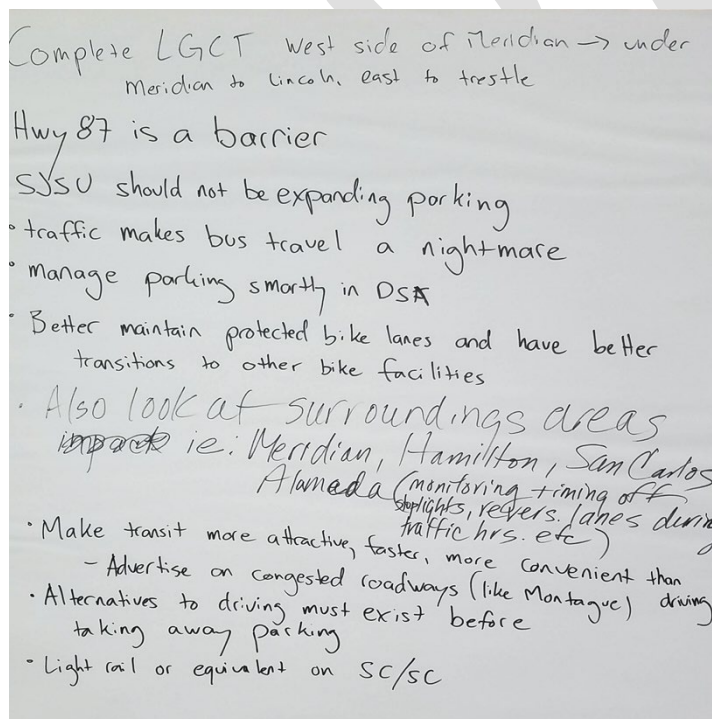 Complete LGCT West side of Meridian → under
Meridian to Lincoln, east to trestle
Hwy 87 is a barrier
SJSU should not be expanding parking
• traffic makes bus travel a nightmare
• manage parking smartly in DSA
• Better maintain protected bike lanes and have better
transitions to other bike facilities
• Also look at surroundings areas
ie: Meridian, Hamillton, San Carlos
Alameda (monitoring timing off
stoplights, revers. lanes durin
traffic hrs. etc)
• Make transit more attractive, faster, more convenient than
driving
– Advertise on congested roadways (like Montague)
• Alternatives to driving must exist before
taking away parking
• Light rail or equivalent on SC/SC